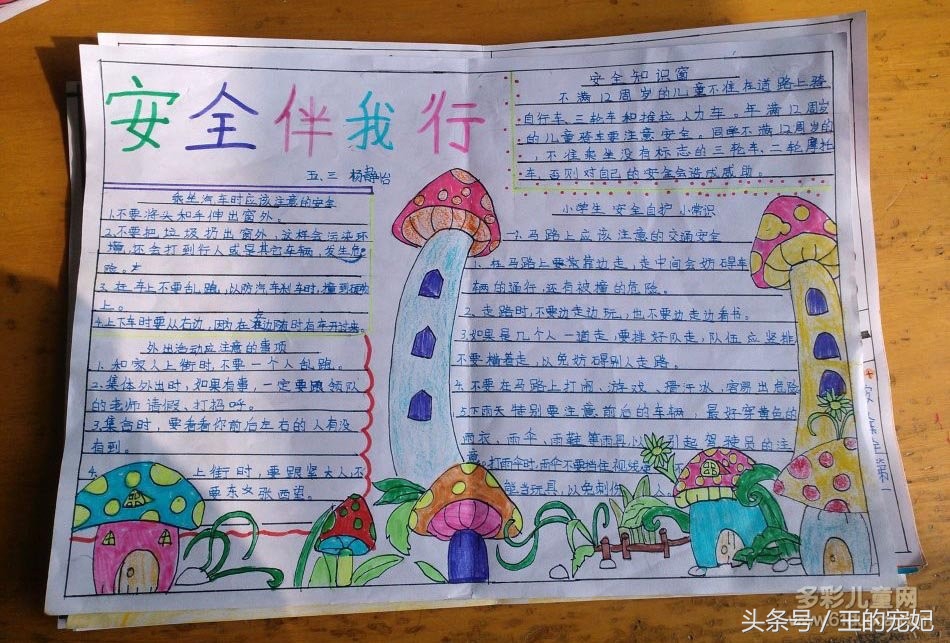 安全伴我行
五.三 杨静怡
乘坐汽车时应该注意的安全
1.不要将头和手伸出窗外。
2.不要把垃圾扔出窗外,这样会污染环
境,还会打到行人或是其它车辆,发生危
险。
3.在车上不要乱跑,以防汽车刹车时,撞到
上。
4.上下车时要从右边,因为在左边随时有车开过来。
外出活动应注意的事项
1.和家人上街时,不要一个人乱跑。
2.集体外出时,如果有事,一定要跟领队
的老师请假、打招呼。
3.集合时,要看看你前后左右的人有没
有到。
4.上街时,要跟紧大人,不
要东女张西望。
安全知识窗
不满12周岁的儿童不准在道路上骑
自行车、三轮车和推拉人力车。年满12周岁
的儿童骑车要注意安全。同学不满12周岁的
,不准乘坐没有标志的三轮车、二轮摩托
车,否则对自己的安全会造成威胁。
小学生安全自护小常识
一.马路上应该注意的交通安全
1.在马路上要靠靠边走,走中间会妨碍车
辆的通行,还有被撞的危险。
2.走路时,不要边走边玩,也不要边走边看书。
3.如果是几个人一道走,要排好队走,队伍应竖排
不要横着走,以免妨碍别人走路。
4.不要在马路上打闹、游戏、滑冰,容易出危险
5.下雨天特别要注意前后的车辆,最好穿黄色的
雨衣、雨伞、雨鞋等雨具,以引起驾驶员的注
意.打雨伞时,雨伞不要挡住视线 不
能当玩具,以免刺伤 人。
多彩儿童网
头条号/王的宠妃